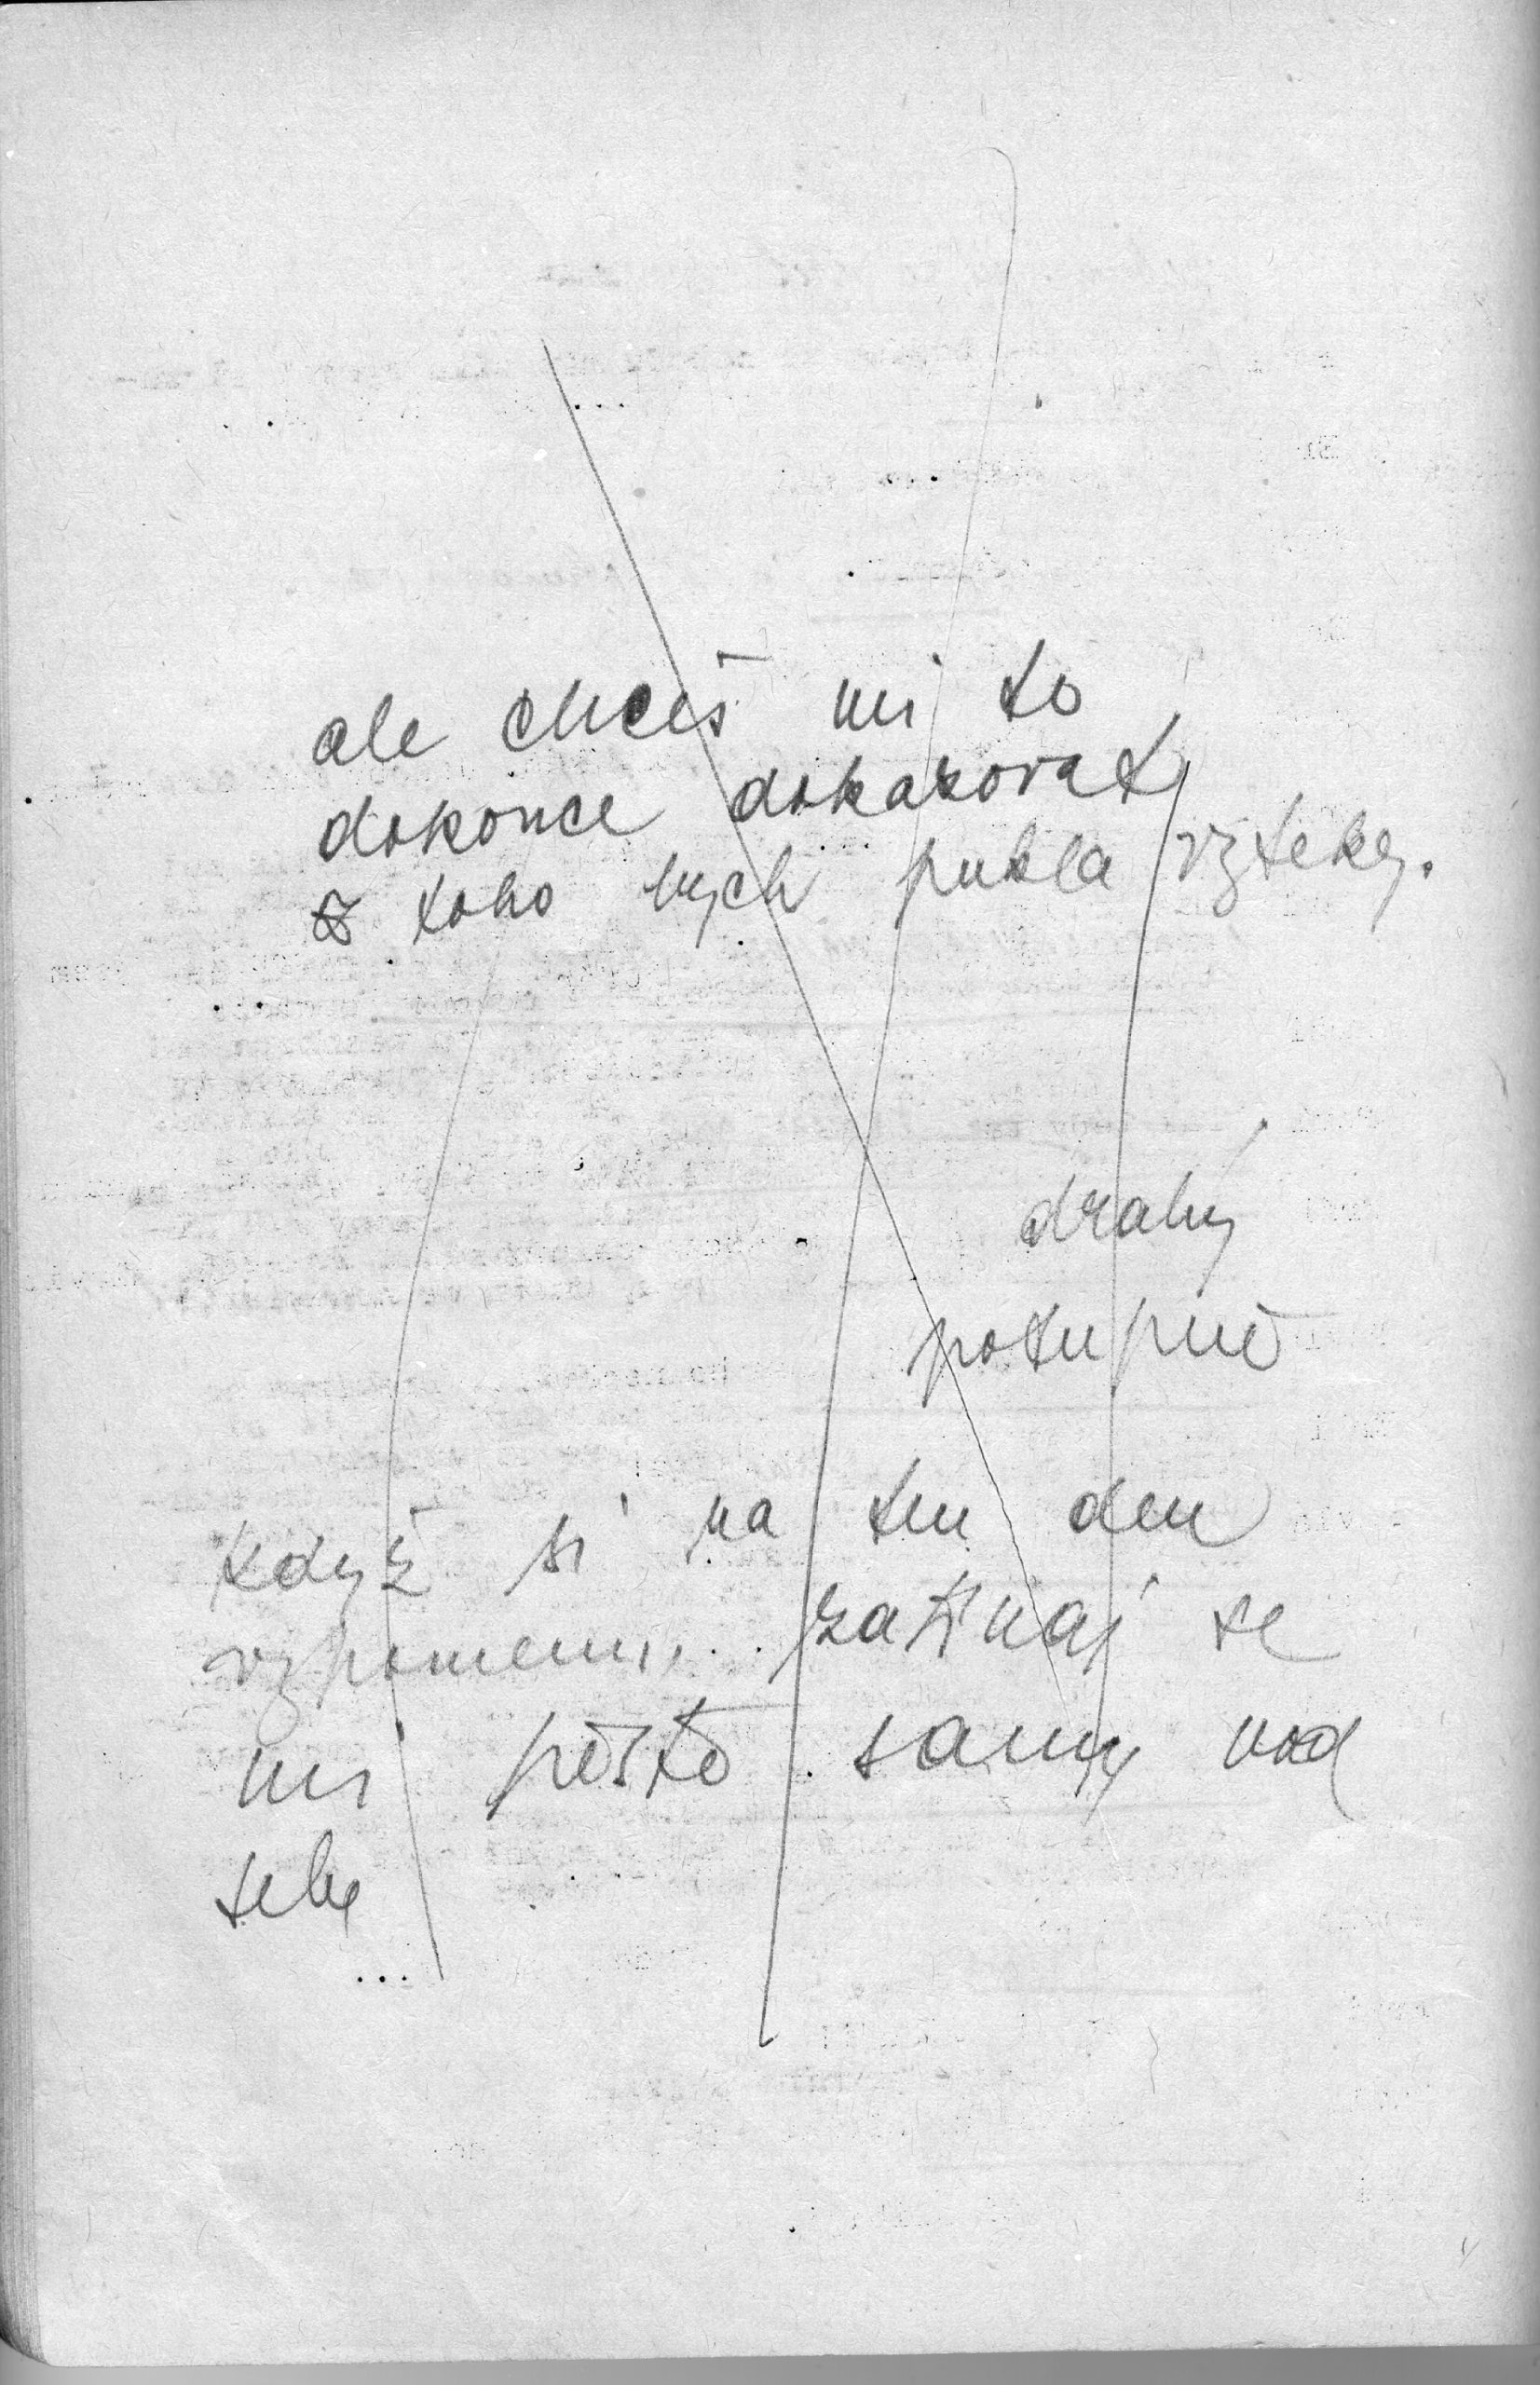 ale chceš mi to
dokonce dokazovat,
z toho bych pukla vzteky.
drahý
potupně
když si na ten den
vzpomenu... zatínaj se
mi pěstě samy vod
sebe
...